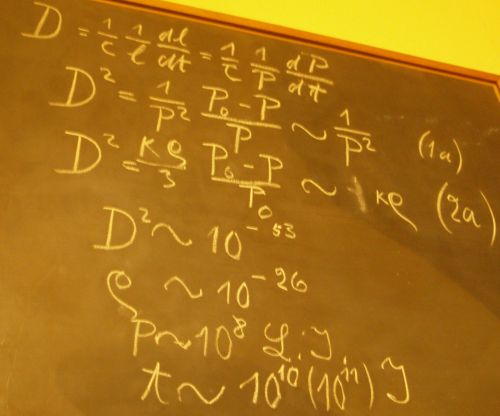 D = 1/c 1/l dl/dt = 1/c 1/P dP/dt
D² = 1/P² (P₀-P)/P ~ 1/P² (1a)
D² = κρ/3 (P₀-P)/P₀ ~ κρ (2a)
D² ~ 10⁻⁵³
ρ ~ 10⁻²⁶
P ~ 10⁸ L.J
t ~ 10¹⁰(10¹¹) J